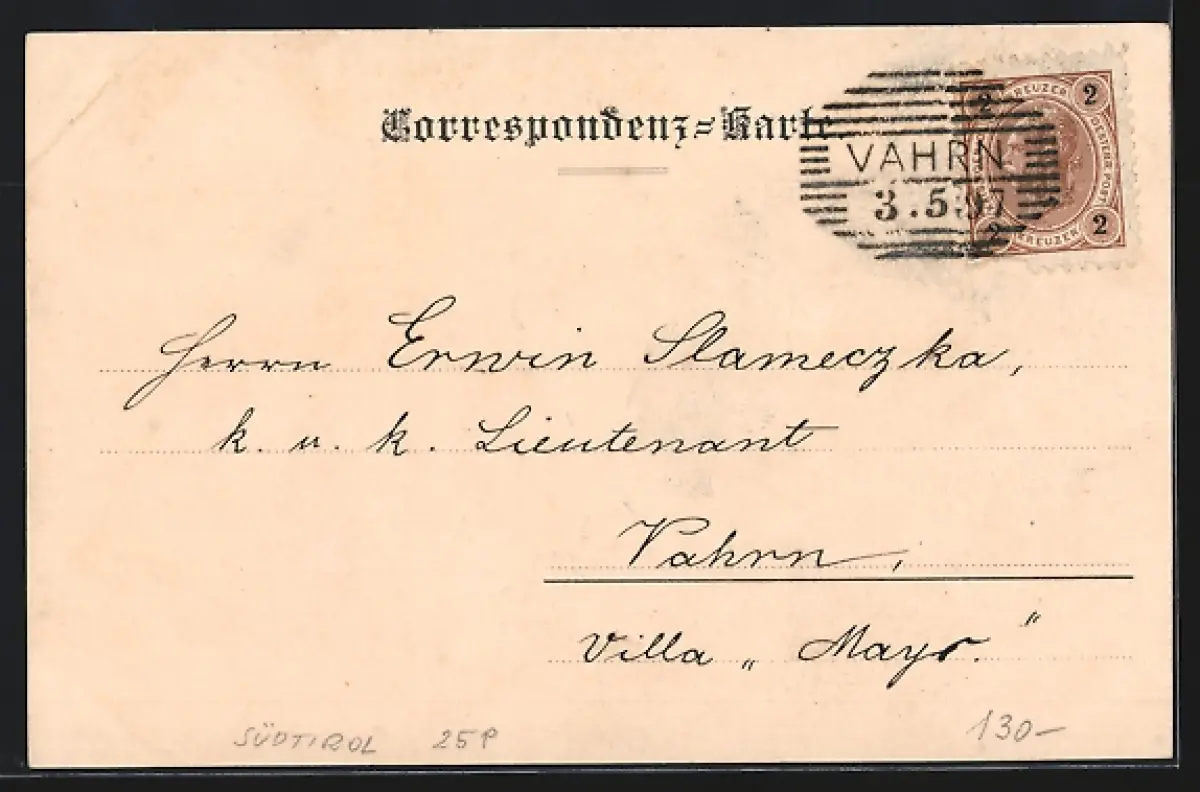 Correspondenz-Karte.
VAHRN
3.5.97
2 KREUZER 2
OESTERR. POST
2 KREUZER 2
Herrn Erwin Slameczka,
k. u. k. Lieutenant
Vahrn,
Villa „Mayr."
SÜDTIROL 25P 130—